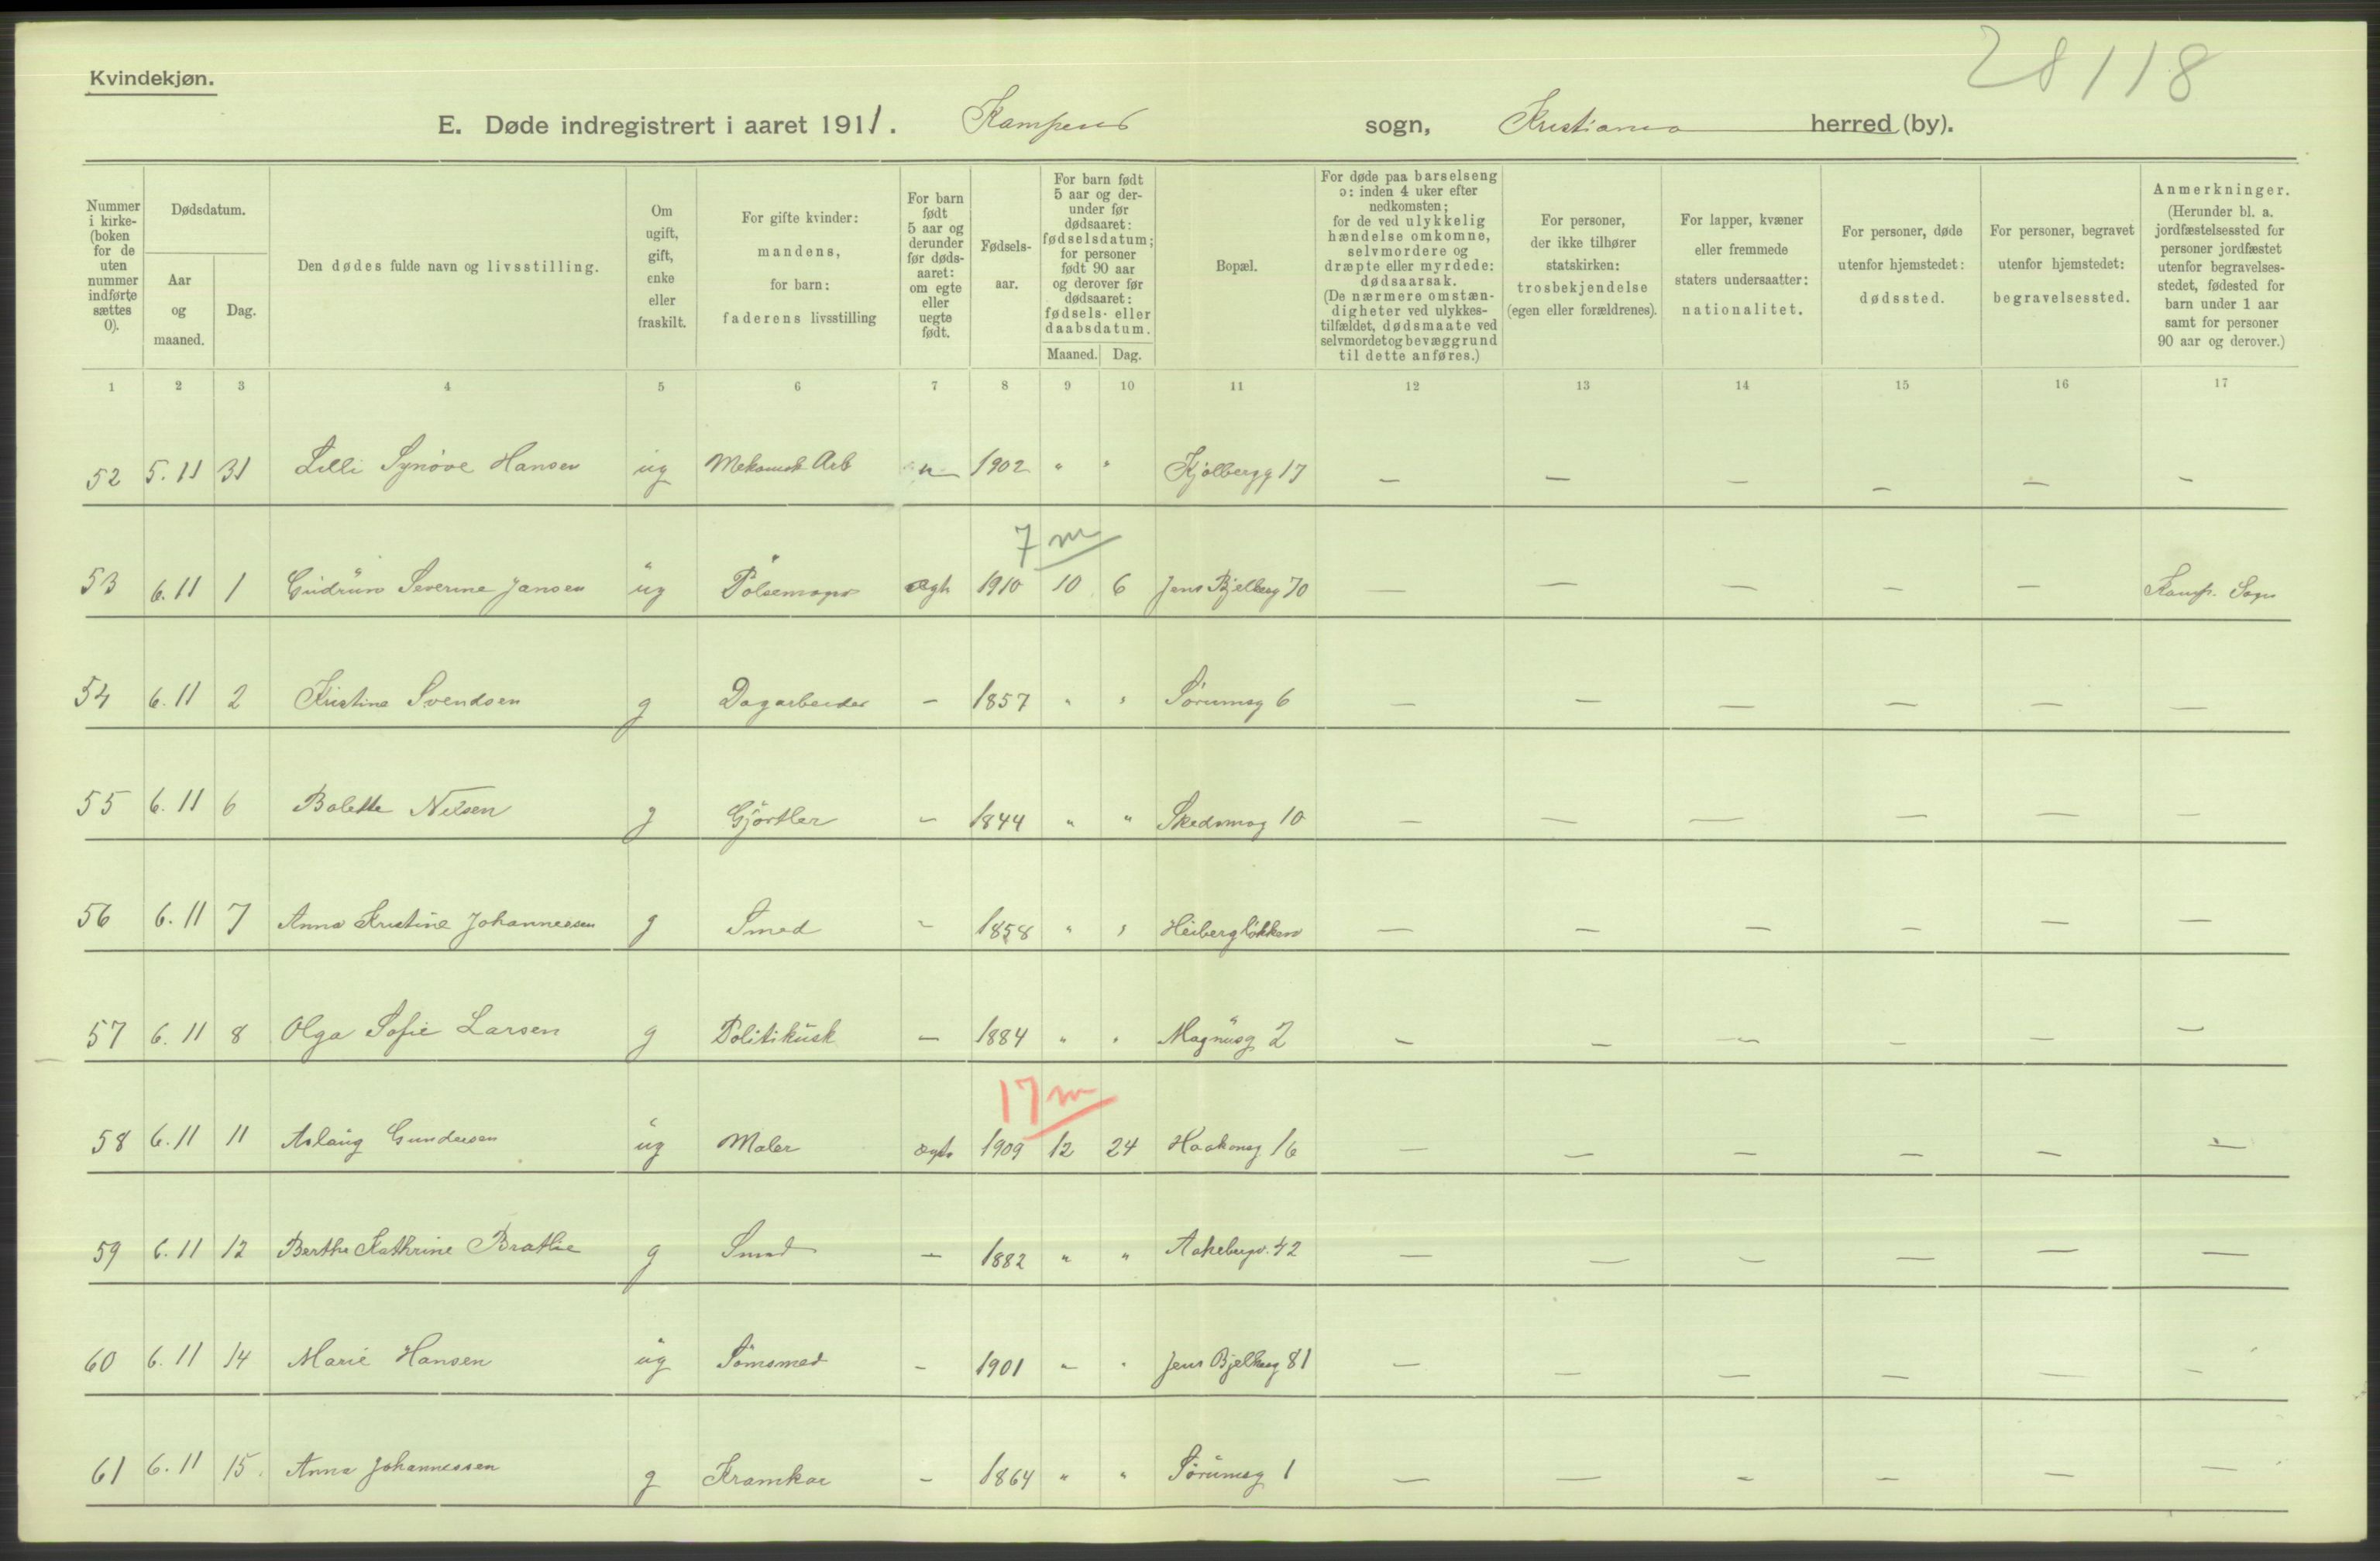 28118
Kvindekjøn.
E. Døde indregistrert i aaret 1911. Kampens sogn, Kristiania herred (by).
Nummer i kirke-(boken for de uten nummer indførte sættes 0).
Dødsdatum.
Aar og maaned.
Dag.
Den dødes fulde navn og livsstilling.
Om ugift, gift, enke eller fraskilt.
For gifte kvinder: mandens, for barn: faderens livsstilling
For barn født 5 aar og derunder før døds-aaret: om egte eller uegte født.
Fødsels-aar.
For barn født 5 aar og der-under før dødsaaret: fødselsdatum; for personer født 90 aar og derover før dødsaaret: fødsels- eller daabsdatum.
Maaned. Dag.
Bopæl.
For døde paa barselseng ɔ: inden 4 uker efter nedkomsten; for de ved ulykkelig hændelse omkomne, selvmordere og dræpte eller myrdede: dødsaarsak. (De nærmere omstæn-digheter ved ulykkes-tilfældet, dødsmaate ved selvmordet og bevæggrund til dette anføres.)
For personer, der ikke tilhører statskirken: trosbekjendelse (egen eller forældrenes).
For lapper, kvæner eller fremmede staters undersaatter: nationalitet.
For personer, døde utenfor hjemstedet: dødssted.
For personer, begravet utenfor hjemstedet: begravelsessted.
Anmerkninger. (Herunder bl. a. jordfæstelsessted for personer jordfæstet utenfor begravelses-stedet, fødested for barn under 1 aar samt for personer 90 aar og derover.)
1 2 3 4 5 6 7 8 9 10 11 12 13 14 15 16 17
52 5.11 31 Lilli Synöve Hansen ug Mekanisk Arb " 1902 " " Kjølbergg 17 — — — — — —
7 m
53 6.11 1 Gudrun Severine Jansen ug Pölsemager ægte 1910 10 6 Jens Bjelkesg 70 — — — — — Kamp. Sogn
54 6.11 2 Kristine Svendsen g Dagarbeider — 1857 " " Sörumsg 6 — — — — — —
55 6.11 6 Bolette Nilsen g Gjörtler — 1844 " " Skedsmog 10 — — — — — —
56 6.11 7 Anna Kristine Johannessen g Smed — 1858 " " Heiberglökken — — — — — —
57 6.11 8 Olga Sofie Larsen g Politikusk — 1884 " " Magnusg 2 — — — — — —
17 m
58 6.11 11 Aslaug Gundersen ug Maler ægte 1909 12 24 Haakonsg 16 — — — — — —
59 6.11 12 Berthe Kathrine Brathe g Smed — 1882 " " Aakebergv. 42 — — — — — —
60 6.11 14 Marie Hansen ug Sömsmed — 1901 " " Jens Bjelkesg 81 — — — — — —
61 6.11 15 Anna Johannessen g Kramkar — 1864 " " Sörumsg 1 — — — — — —